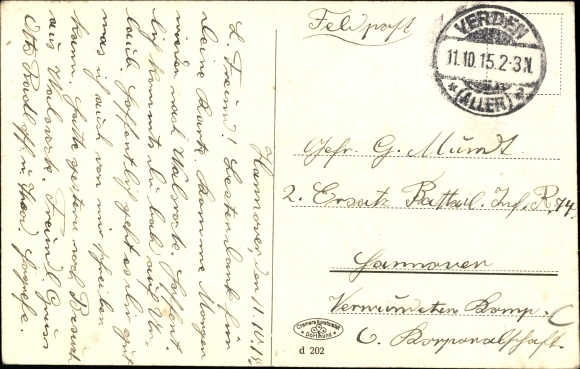 Hannover, den 11.10.15
L. Freund! Besten Dank für
deine Karte. Komme Morgen
wieder nach Walsrode. Hoffent-
lich kommst du bald auf Ur-
laub. Hoffentlich geht es dir gut
was ich auch von mir schreiben
kann. Hatte gestern noch Besuch
aus Walsrode. Freundl. Gruss
Otto
Feldpost
VERDEN
11.10.15.2-3N.
*(ALLER)*
Gefr. G. Mundt
2. Ersatz Battal. Inf. R. 74.
Hannover
Verwundeten Komp.
6. Korporalschaft.
Cramers Kunstanstalt
Dortmund
d 202